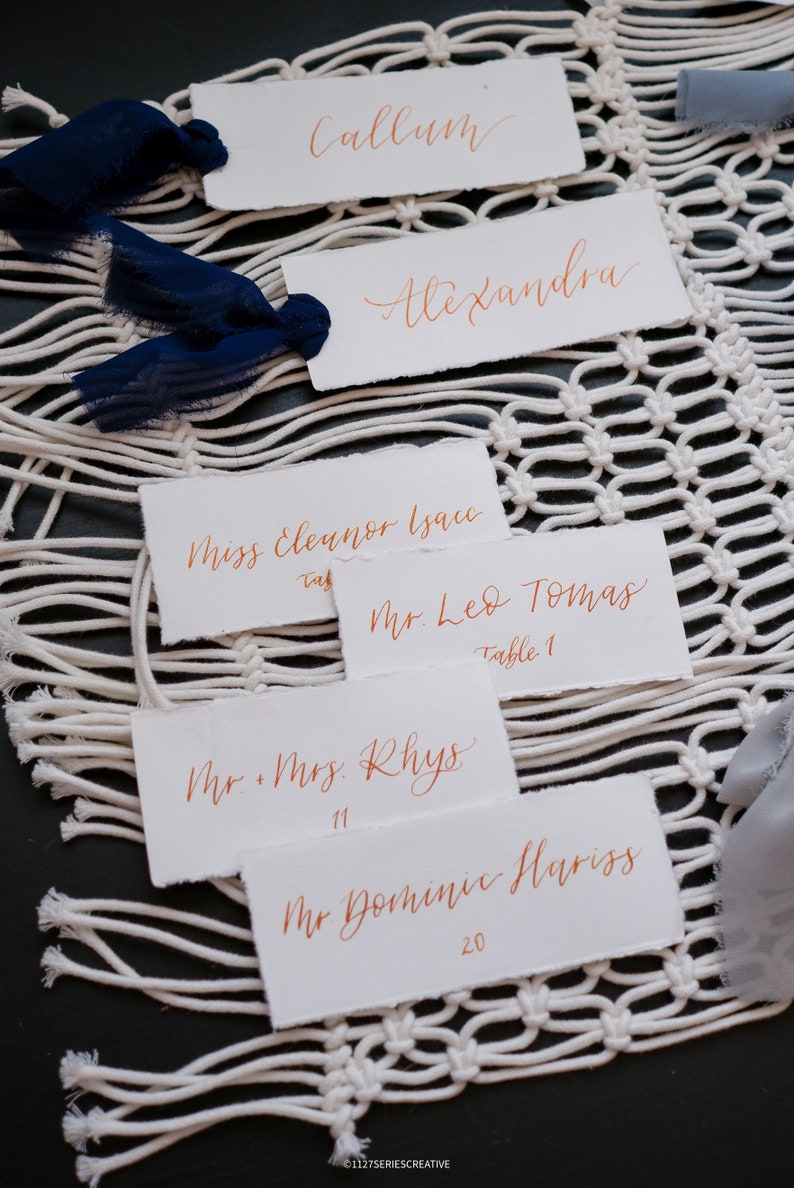 Callum
Alexandra
Miss Eleanor Isacc
Mr. Leo Tomas
Table 1
Mr. + Mrs. Rhys
11
Mr. Dominic Hariss
20
©1127SERIESCREATIVE